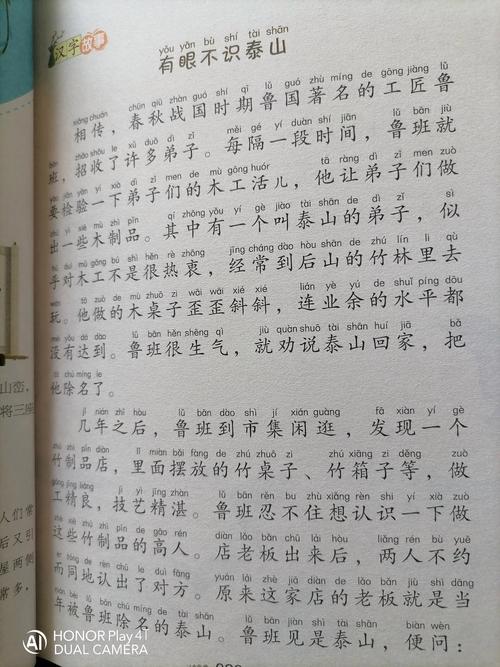 汉字故事
yǒu yǎn bù shí tài shān
有眼不识泰山
xiāng chuán chūn qiū zhàn guó shí qī lǔ guó zhù míng de gōng jiàng lǔ
相传，春秋战国时期鲁国著名的工匠鲁
bān zhāo shōu le xǔ duō dì zǐ měi gé yí duàn shí jiān lǔ bān jiù
班，招收了许多弟子。每隔一段时间，鲁班就
yào jiǎn yàn yí xià dì zǐ men de mù gōng huór tā ràng dì zǐ men zuò
要检验一下弟子们的木工活儿，他让弟子们做
chū yì xiē mù zhì pǐn qí zhōng yǒu yí gè jiào tài shān de dì zǐ sì
出一些木制品。其中有一个叫泰山的弟子，似
hū duì mù gōng bú shì hěn rè zhōng jīng cháng dào hòu shān de zhú lín lǐ qù
乎对木工不是很热衷，经常到后山的竹林里去
wán tā zuò de mù zhuō zi wāi wāi xié xié lián yè yú de shuǐ píng dōu
玩。他做的木桌子歪歪斜斜，连业余的水平都
méi yǒu dá dào lǔ bān hěn shēng qì jiù quàn shuō tài shān huí jiā bǎ
没有达到。鲁班很生气，就劝说泰山回家，把
tā chú míng le
他除名了。
jǐ nián zhī hòu lǔ bān dào shì jí xián guàng fā xiàn yí gè
几年之后，鲁班到市集闲逛，发现一个
zhú zhì pǐn diàn lǐ miàn bǎi fàng de zhú zhuō zi zhú xiāng zi děng zuò
竹制品店，里面摆放的竹桌子、竹箱子等，做
gōng jīng liáng jì yì jīng zhàn lǔ bān rěn bu zhù xiǎng rèn shi yí xià zuò
工精良，技艺精湛。鲁班忍不住想认识一下做
zhè xiē zhú zhì pǐn de gāo rén diàn lǎo bǎn chū lái hòu liǎng rén bù yuē
这些竹制品的高人。店老板出来后，两人不约
ér tóng de rèn chū le duì fāng yuán lái zhè jiā diàn de lǎo bǎn jiù shì dāng
而同地认出了对方。原来这家店的老板就是当
nián bèi lǔ bān chú míng de tài shān lǔ bān jiàn shì tài shān biàn wèn
年被鲁班除名的泰山。鲁班见是泰山，便问：
山峦，
将三座
人们常
后又引
星两便
常多，
HONOR Play4T
DUAL CAMERA